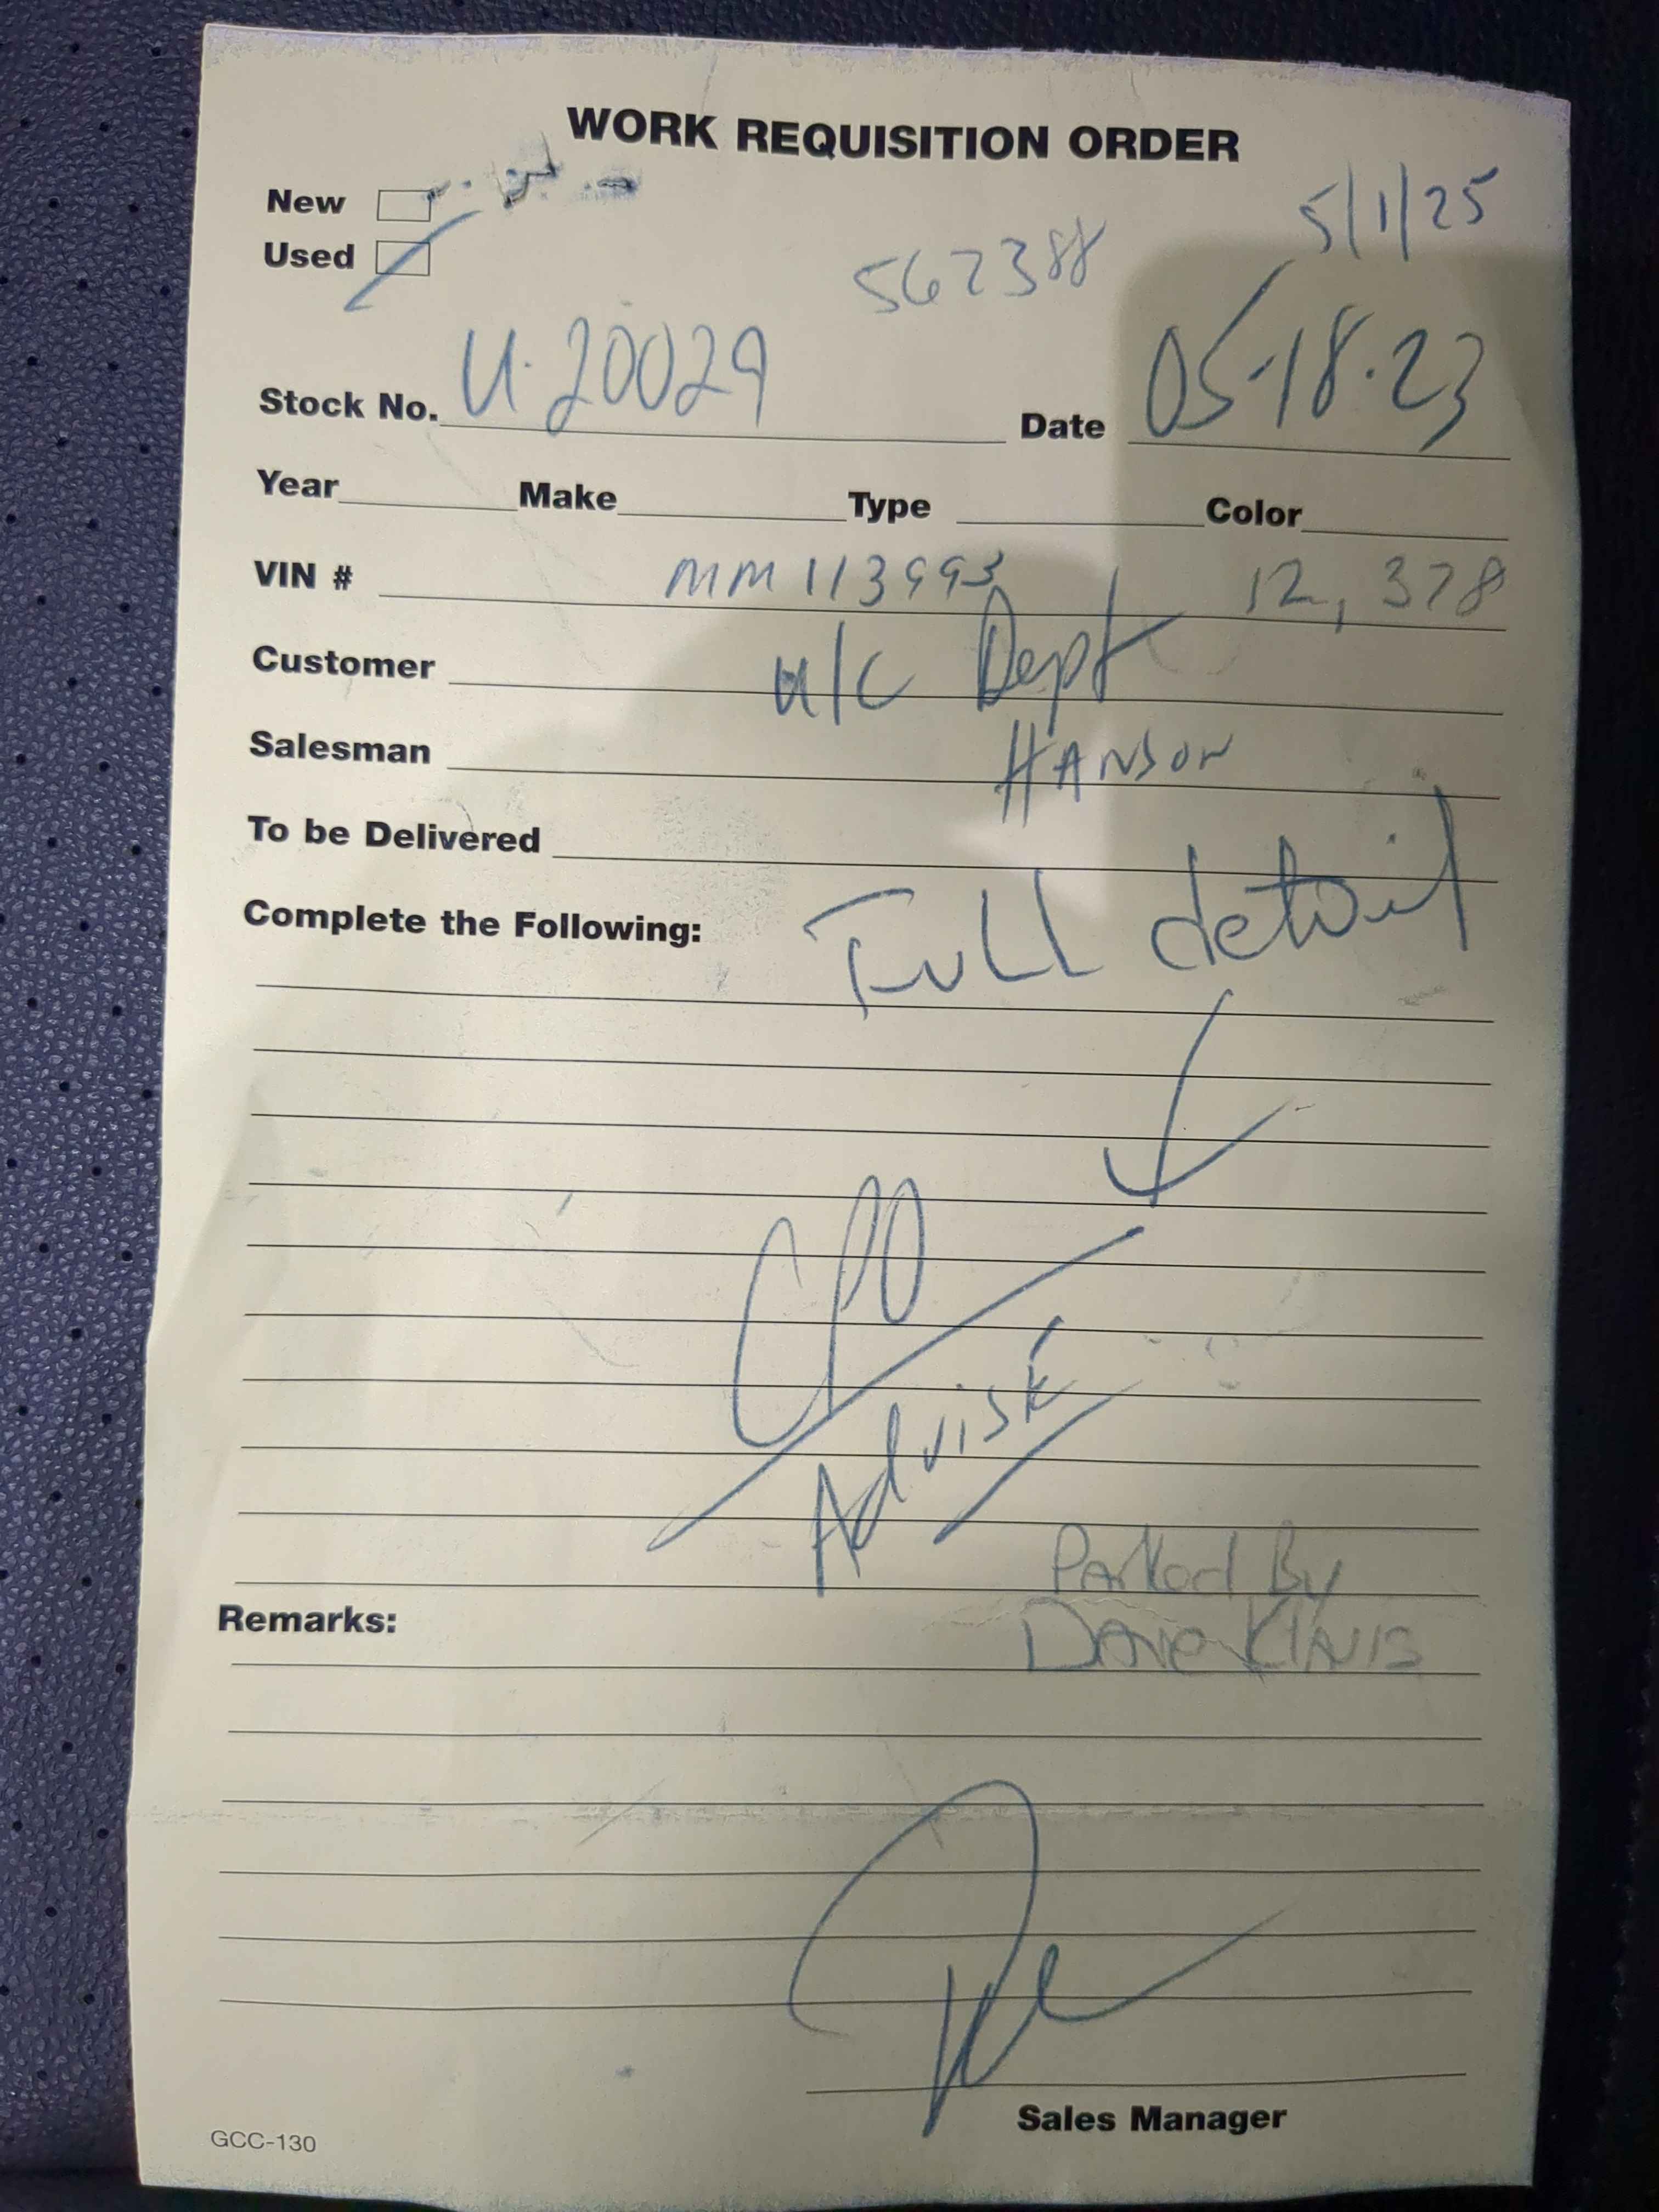 WORK REQUISITION ORDER
New
5/1/25
Used
567388
Stock No. U.20029 Date 05.18.23
Year Make Type Color
VIN # MM113993 12,378
Customer u/c Dept
Salesman HANSON
To be Delivered
Complete the Following: Full detail
CPO
Advise
Parked By
Remarks:
Dave
Sales Manager
GCC-130